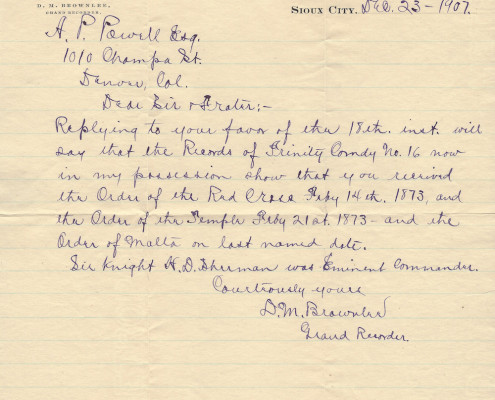 D. M. BROWNLEE,
GRAND RECORDER.
SIOUX CITY, Dec. 23 - 1907.
A. P. Powell Esq.
1010 Champa St.
Denver, Col.
Dear Sir & Frater;-
Replying to your favor of the 18th. inst. will
say that the Records of Trinity Comdy No. 16 now
in my possession show that you received
the Order of the Red Cross Feby 14th. 1873, and
the Order of the Temple Feby 21st. 1873 - and the
Order of Malta on last named date.
Sir Knight H. D. Sherman was Eminent Commander.
Courteously yours
D. M. Brownlee
Grand Recorder.